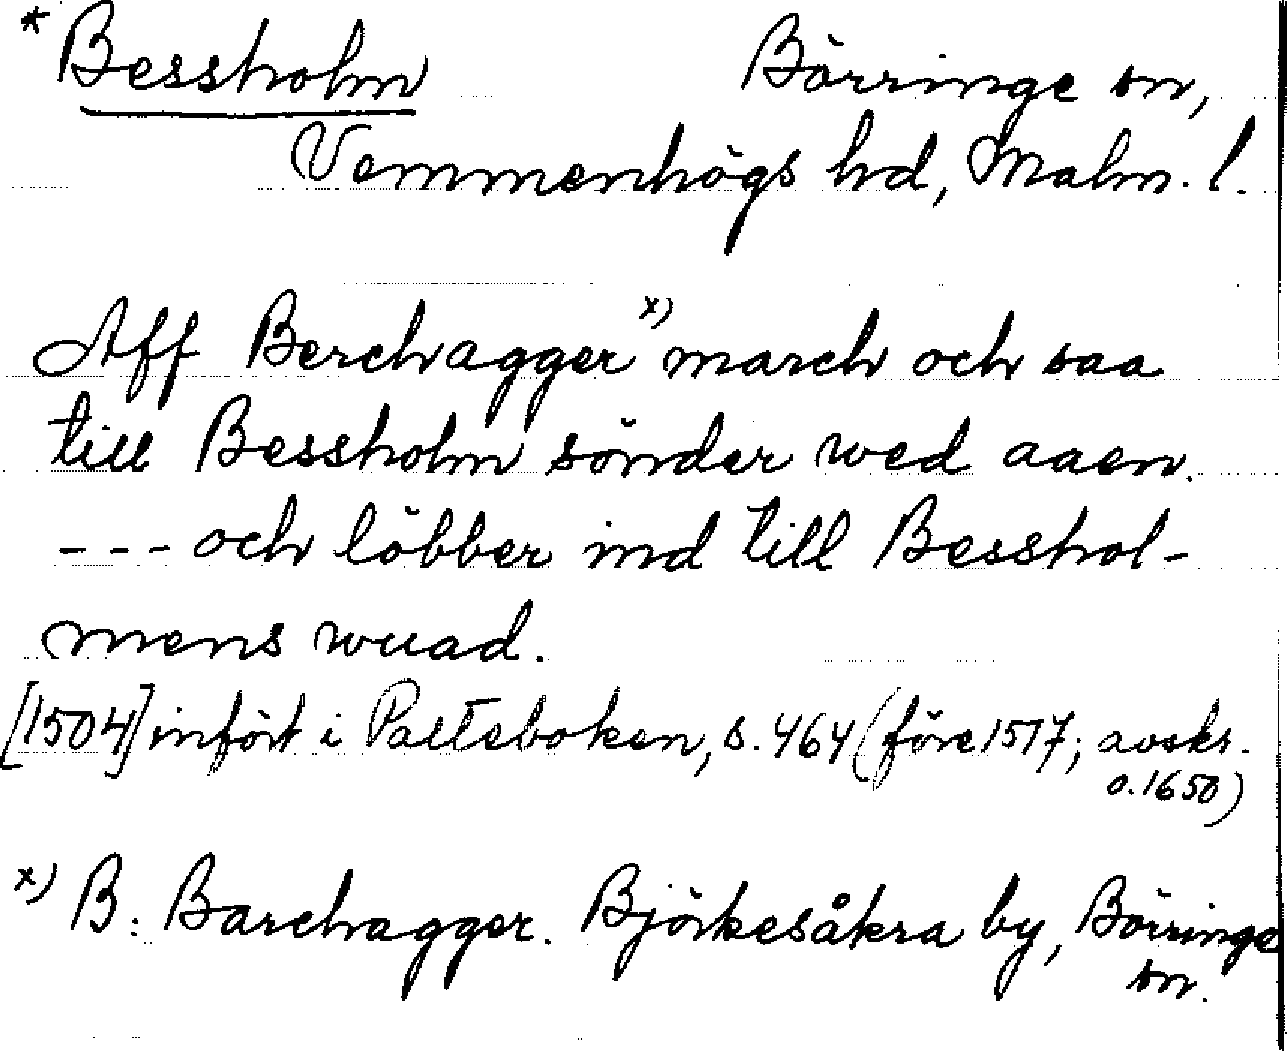 * Bessholm Börringe sn,
Vemmenhögs hd, Malm. l.
Aff Berchagger x) march och saa
till Bessholm sönder wed aaen.
--- och löbber ind till Besshol-
mens wuad.
[1504] infört i Palteboken, s. 464 (före 1517; avskr.
o. 1650)
x) B: Barchagger. Björkesåkra by, Börringe
sn.